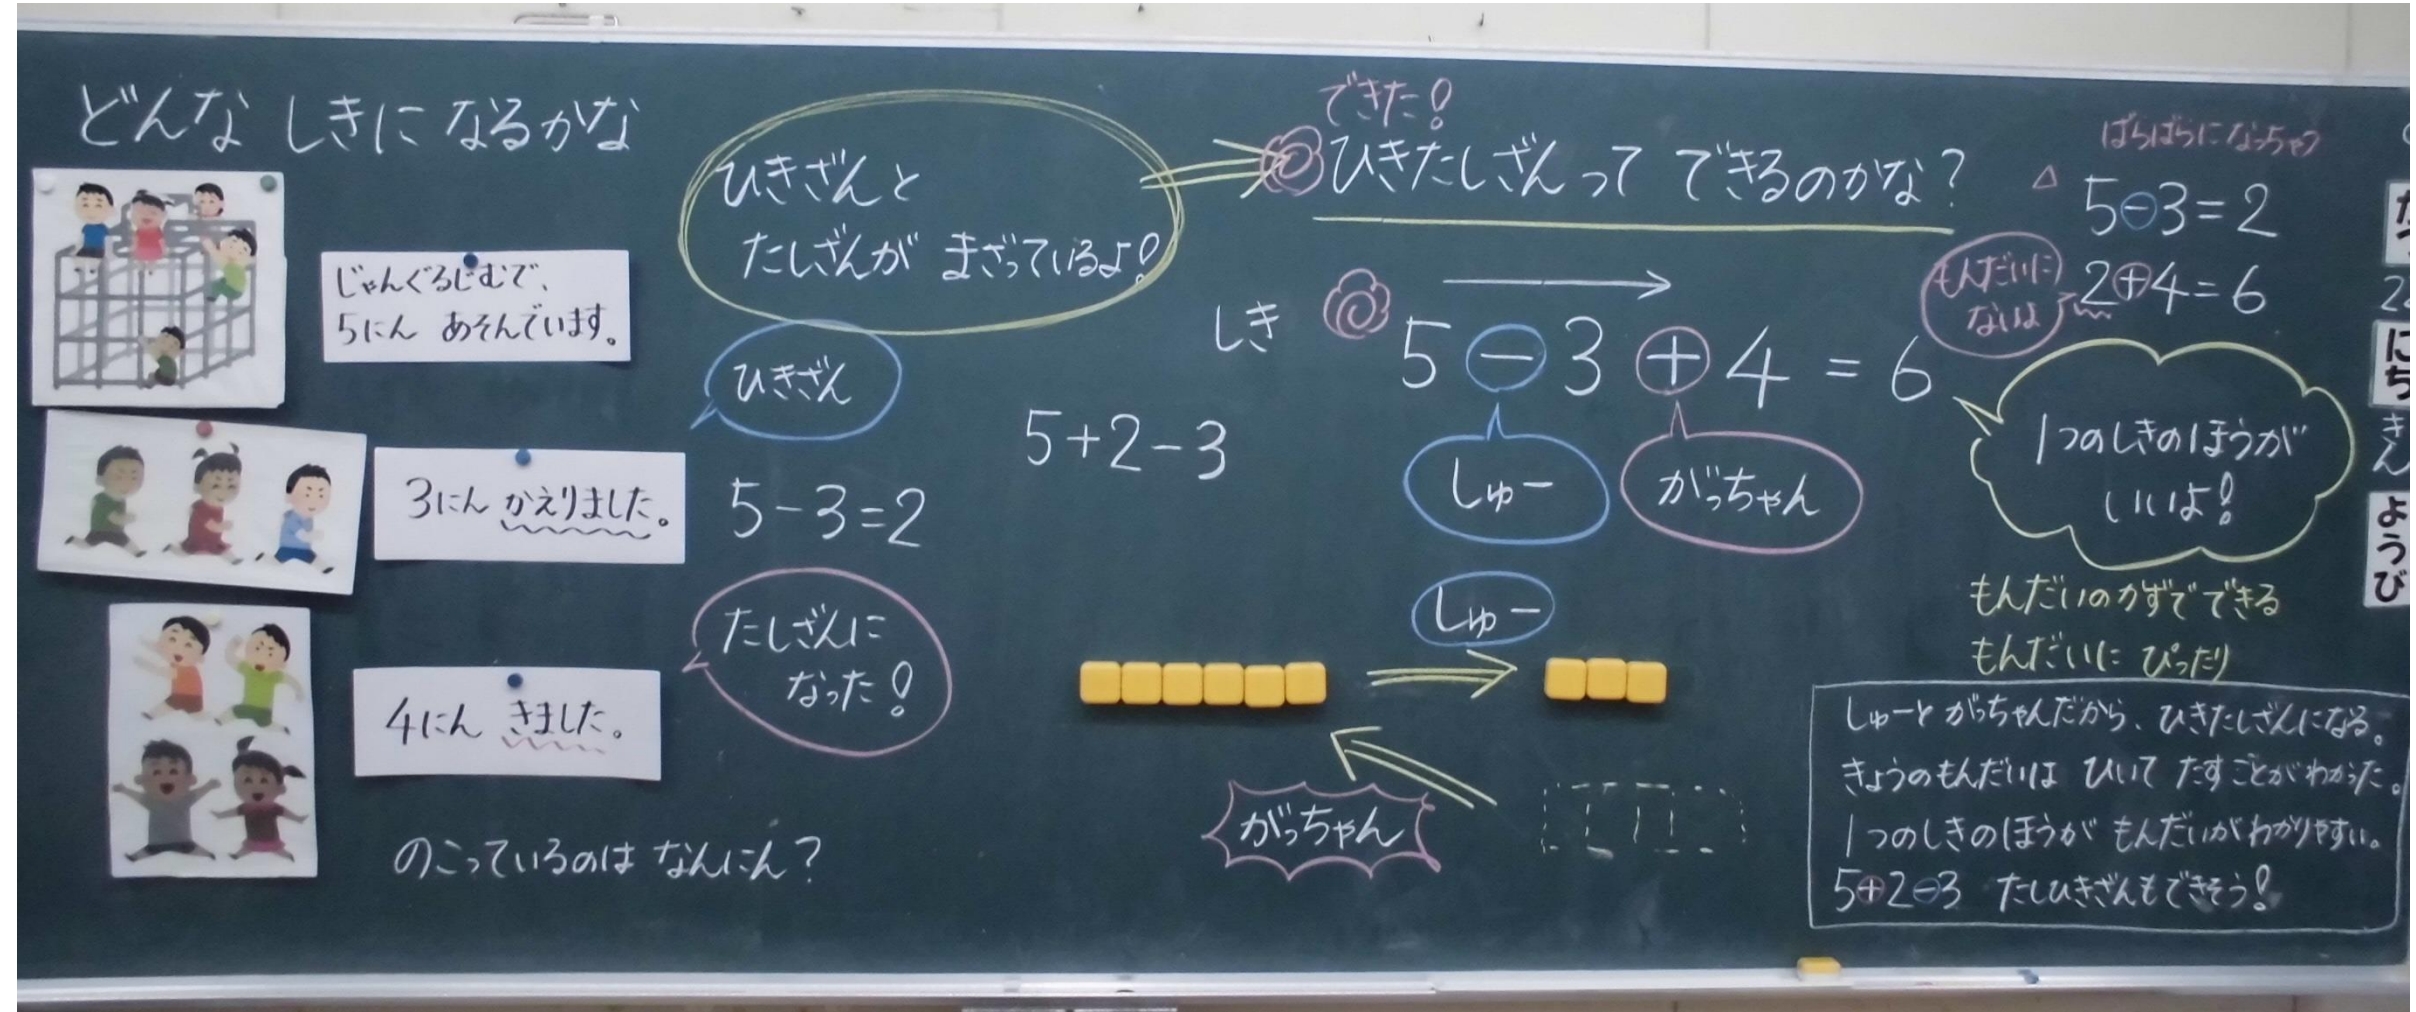 どんな しきに なるかな
じゃんぐるじむで、
5にん あそんでいます。
3にん かえりました。
4にん きました。
のこっているのは なんにん?
ひきざんと
たしざんが まざっているよ!
ひきざん
5-3=2
たしざんに
なった!
5+2-3
できた!
ひきたしざんって できるのかな?
しき
5-3+4=6
しゅー
がっちゃん
しゅー
がっちゃん
ばらばらになっちゃう
△
5-3=2
2+4=6
もんだいに
ないよ
1つのしきのほうが
いいよ!
もんだいのかずでできる
もんだいに ぴったり
しゅーと がっちゃんだから、ひきたしざんになる。
きょうのもんだいは ひいて たすことがわかった。
1つのしきのほうが もんだいがわかりやすい。
5+2-3 たしひきざんもできそう!
にち
きん
ようび